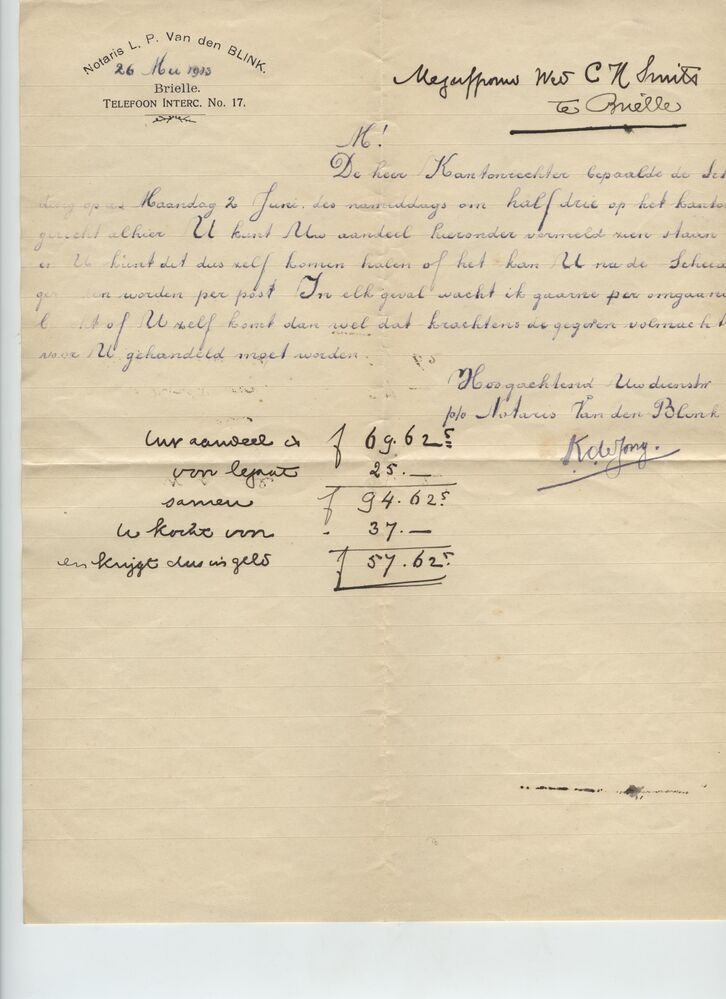 Notaris L. P. Van den BLINK.
26 Mei 1913
Brielle.
TELEFOON INTERC. No. 17.
Mejuffrouw Wed C N Smits
te Brielle
M!
De heer Kantonrechter bepaalde de
op Maandag 2 Juni des namiddags om half drie op het kanton
gerecht alhier U kunt Uw aandeel hieronder vermeld zien staan
en U kunt dit dus zelf komen halen of het kan U na de
worden per post In elk geval wacht ik gaarne per omgaand
of U zelf komt dan wel dat krachtens de gegeven volmacht
voor U gehandeld moet worden.
Hoogachtend Uwdienstw
p/o Notaris Van den Blink
K. de Jong.
Uw aandeel is f 69.62⁵
voor legaat 25.—
samen f 94.62⁵
U kocht voor - 37.—
en krijgt dus in geld f 57.62⁵